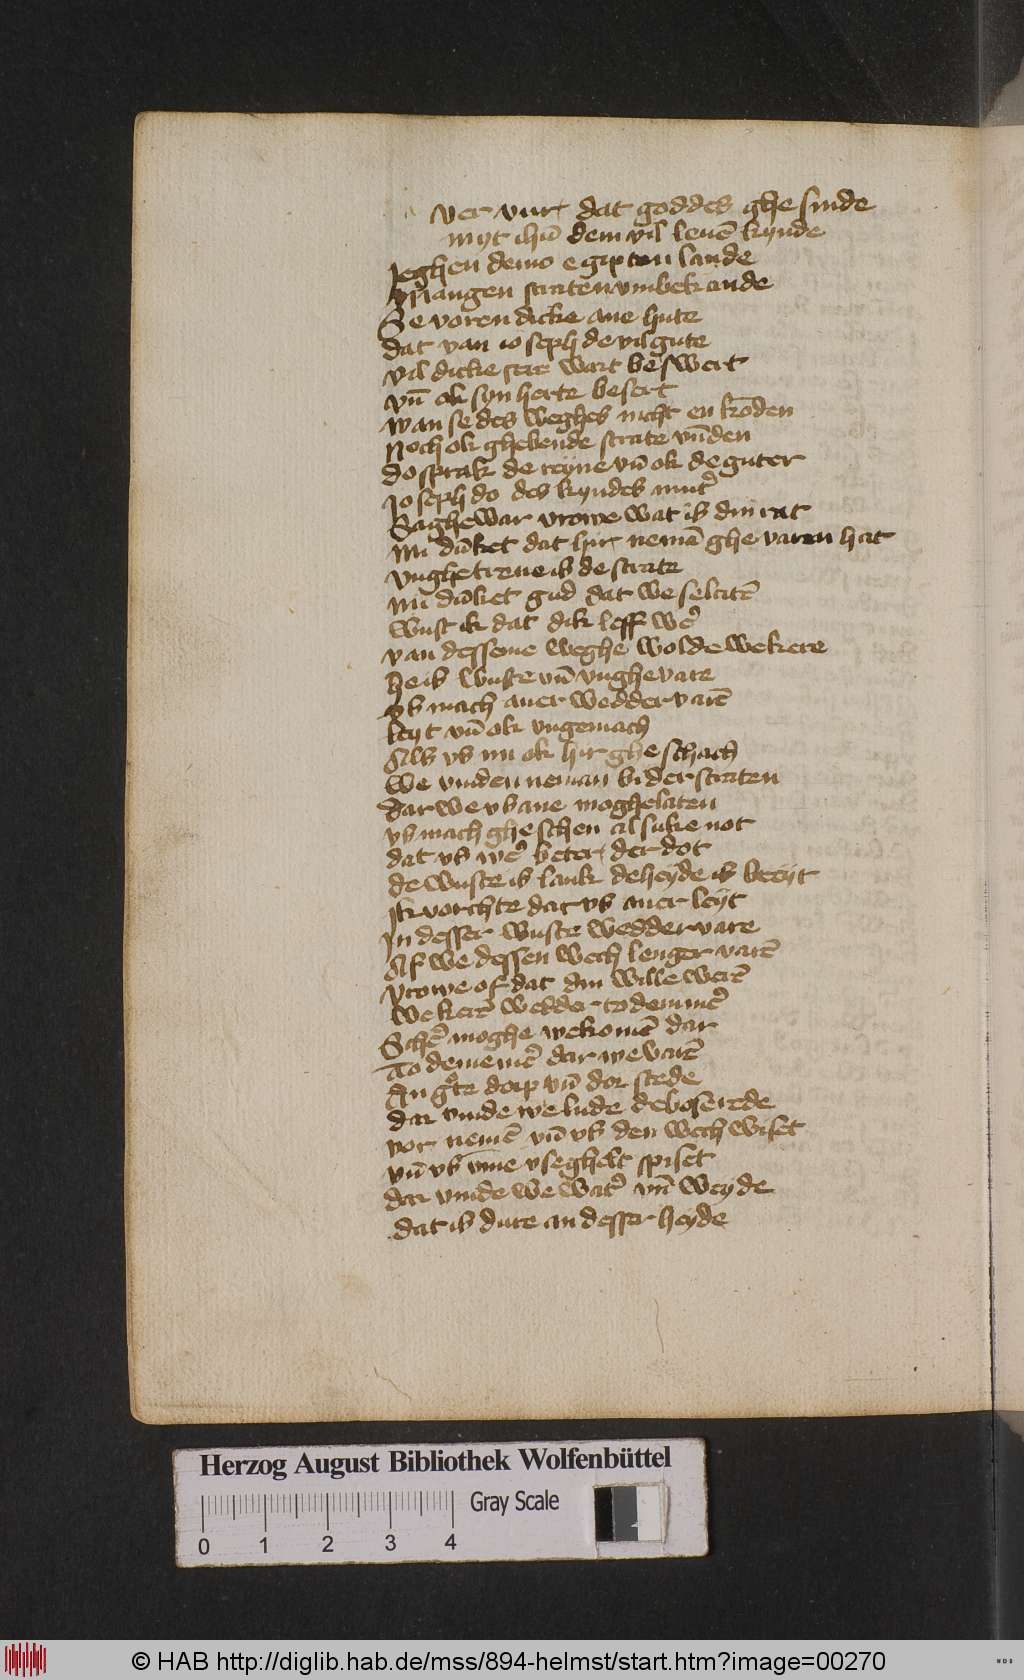 ver vur dat goddes ghe sinde
myt ihū dem vil leuē kynde
Jeghen deme egipten lande
straten vmbekande
Se voren dicke ane hute
dat van io seph de vil gute
vil dicke sere wart beswert
vn̄ ok syn herte besert
wan se des weghes nicht en kōden
Noch ok ghebende strate vn̄den
do sprak de reyne vn̄ ok de guter
Jo seph do des kyndes mut᷒
Saghe war vrowe wat is din rat
mi dūket dat hir nemā ghe varen hat
vnghetreue is de strate
mi dūket gud dat we
wust ik dat dik leff we᷒
van desseme weghe wolde we kere
he is wuste vn̄ vnghevare
vs mach auer wedder varē
leyt vn̄ ok vngemach
Als vs nu ok hir ghe schach
we vinden neman bi der straten
dar we vs ane moghe laten
vs mach ghe schen al suke not
dat vs we᷒ beter der dot
de wuste is lank de heyde is breyt
Jk vorchte dat vs auer leyt
Jn desser wuste wedder vare
Af we dessen wech lenger varē
Vrowe of dat din wille werē
we kerē wedder to dem me᷒
Schē moghe we komē dar
To deme me᷒ dar we varē
An gͦte dorp vn̄ dor stede
dar vinde we lude de bose rede
vor nemē vn̄ vs den wech wiset
vn̄ vs vm̄e vse ghelt spiset
dar vinde we wat᷒ vn̄ weyde
dat is dure an desser heyde
Herzog August Bibliothek Wolfenbüttel
Gray Scale
0 1 2 3 4
© HAB http://diglib.hab.de/mss/894-helmst/start.htm?image=00270